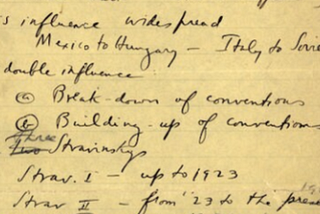 's influence widespread
Mexico to Hungary – Italy to Sovie
double influence
ⓐ Break-down of conventions
ⓑ Building-up of conventions
Three
Two Stravinskys
Strav. I – up to 1923
Strav II – from '23 to the prese